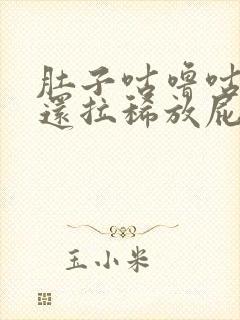 肚子咕噜咕
還拉稀放屁
玉小米